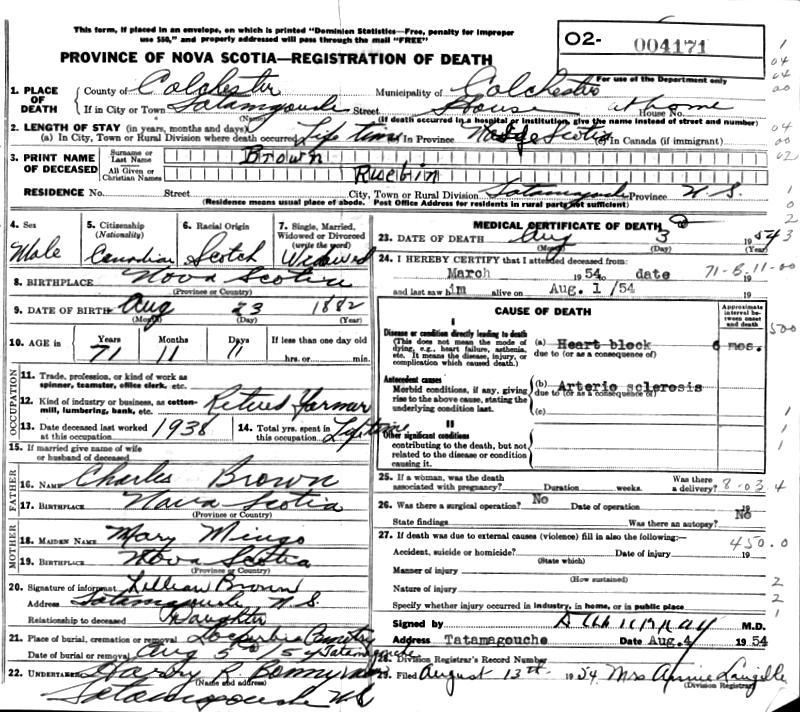 This form, if placed in an envelope, on which is printed "Dominion Statistics—Free, penalty for improper
use $50," and properly addressed will pass through the mail "FREE"
PROVINCE OF NOVA SCOTIA—REGISTRATION OF DEATH
O2- 004171
For use of the Department only
1. PLACE OF DEATH County of Colchester Municipality of Colchester
If in City or Town Tatamagouche Street House at home House No.
(Name) (If death occurred in a hospital or institution, give the name instead of street and number)
2. LENGTH OF STAY (in years, months and days)
(a) In City, Town or Rural Division where death occurred Life time In Province Nova Scotia (c) In Canada (if immigrant)
3. PRINT NAME OF DECEASED Surname or Last Name Brown
All Given or Christian Names Ruebin
RESIDENCE No. Street City, Town or Rural Division Tatamagouche Province N.S.
(Residence means usual place of abode. Post Office Address for residents in rural parts not sufficient)
4. Sex Male
5. Citizenship (Nationality) Canadian
6. Racial Origin Scotch
7. Single, Married, Widowed or Divorced (write the word) Widowed
8. BIRTHPLACE Nova Scotia
(Province or Country)
9. DATE OF BIRTH Aug 23 1882
(Month) (Day) (Year)
10. AGE in Years 71 Months 11 Days 11 If less than one day old
hrs. or min.
OCCUPATION
11. Trade, profession, or kind of work as spinner, teamster, office clerk, etc.
12. Kind of industry or business, as cotton-mill, lumbering, bank, etc. Retired Farmer
13. Date deceased last worked at this occupation 1938
14. Total yrs. spent in this occupation Lifetime
15. If married give name of wife or husband of deceased
FATHER
16. NAME Charles Brown
17. BIRTHPLACE Nova Scotia
(Province or Country)
MOTHER
18. MAIDEN NAME Mary Mingo
19. BIRTHPLACE Nova Scotia
(Province or Country)
20. Signature of informant Lillian Brown
Address Tatamagouche N.S.
Relationship to deceased Daughter
21. Place of burial, cremation or removal Cemetry
Date of burial or removal Aug 5th/54 Tatamagouche
22. UNDERTAKER Harry R. Bonnyman
(Name and address)
Tatamagouche N.S.
MEDICAL CERTIFICATE OF DEATH
23. DATE OF DEATH Aug 3 1954
(Month) (Day) (Year)
24. I HEREBY CERTIFY that I attended deceased from:
March 1954 to date 19
71-B-11-00
and last saw him alive on Aug. 1 /54 19
CAUSE OF DEATH
Approximate interval between onset and death
I
Disease or condition directly leading to death
(This does not mean the mode of dying, e.g., heart failure, asthenia, etc. It means the disease, injury, or complication which caused death.)
(a) Heart block 6 mos.
due to (or as a consequence of)
Antecedent causes
Morbid conditions, if any, giving rise to the above cause, stating the underlying condition last.
(b) Arterio sclerosis
due to (or as a consequence of)
(c)
II
Other significant conditions
contributing to the death, but not related to the disease or condition causing it.
25. If a woman, was the death associated with pregnancy? Duration weeks. Was there a delivery? 8-03 4
26. Was there a surgical operation? No Date of operation 19
State findings Was there an autopsy? No
27. If death was due to external causes (violence) fill in also the following:—
450.0
Accident, suicide or homicide? Date of injury 19
(State which)
Manner of injury
(How sustained)
Nature of injury
Specify whether injury occurred in industry, in home, or in public place
Signed by M.D.
Address Tatamagouche Date Aug.4 1954
28. Division Registrar's Record Number
29. Filed August 13th 1954. Mrs Annie Langille
(Division Registrar)